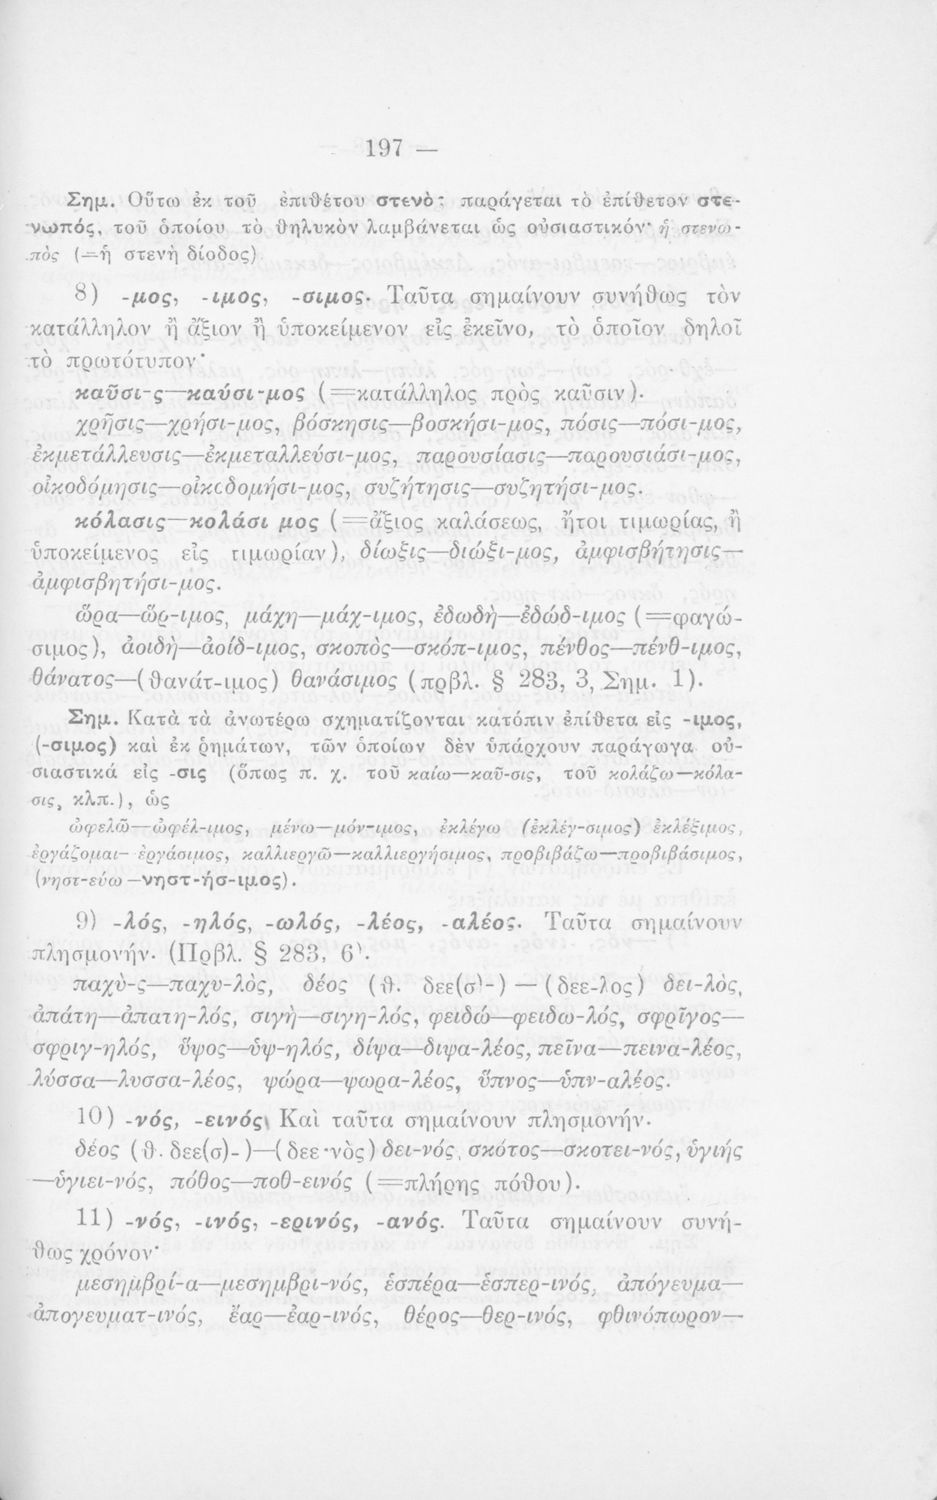 197 —
Σημ. Οὕτω ἐκ τοῦ ἐπιθέτου στενὸς παράγεται τὸ ἐπίθετον στε-
νωπός, τοῦ ὁποίου τὸ θηλυκὸν λαμβάνεται ὡς οὐσιαστικόν· ἡ στενω-
πὸς (=ἡ στενὴ δίοδος)
8) -μος, -ιμος, -σιμος. Ταῦτα σημαίνουν συνήθως τὸν
κατάλληλον ἢ ἄξιον ἢ ὑποκείμενον εἰς ἐκεῖνο, τὸ ὁποῖον δηλοῖ
τὸ πρωτότυπον·
καῦσι-ς—καύσι-μος (=κατάλληλος πρὸς καῦσιν).
χρῆσις—χρήσι-μος, βόσκησις—βοσκήσι-μος, πόσις—πόσι-μος,
ἐκμετάλλευσις—ἐκμεταλλεύσι-μος, παρουσίασις—παρουσιάσι-μος,
οἰκοδόμησις—οἰκοδομήσι-μος, συζήτησις—συζητήσι-μος.
κόλασις—κολάσι μος (=ἄξιος καλάσεως, ἤτοι τιμωρίας, ἢ
ὑποκείμενος εἰς τιμωρίαν), δίωξις—διώξι-μος, ἀμφισβήτησις—
ἀμφισβητήσι-μος.
ὥρα—ὥρ-ιμος, μάχη—μάχ-ιμος, ἐδωδὴ—ἐδώδ-ιμος (=φαγώ-
σιμος), ἀοιδὴ—ἀοίδ-ιμος, σκοπὸς—σκόπ-ιμος, πένθος—πένθ-ιμος,
θάνατος—(θανάτ-ιμος) θανάσιμος (πρβλ. § 283, 3, Σημ. 1).
Σημ. Κατὰ τὰ ἀνωτέρω σχηματίζονται κατόπιν ἐπίθετα εἰς -ιμος,
(-σιμος) καὶ ἐκ ῥημάτων, τῶν ὁποίων δὲν ὑπάρχουν παράγωγα οὐ-
σιαστικά εἰς -σις (ὅπως π. χ. τοῦ καίω—καῦ-σις, τοῦ κολάζω—κόλα-
σις, κλπ.), ὡς
ὠφελῶ—ὠφέλ-ιμος, μένω—μόν-ιμος, ἐκλέγω (ἐκλέγ-σιμος) ἐκλέξιμος,
ἐργάζομαι- ἐργάσιμος, καλλιεργῶ—καλλιεργήσιμος, προβιβάζω—προβιβάσιμος,
(νηστ-εύω—νηστ-ήσ-ιμος).
9) -λός, -ηλός, -ωλός, -λέος, -αλέος. Ταῦτα σημαίνουν
πλησμονήν. (Πρβλ. § 283, 6).
παχὺ-ς—παχυ-λὸς, δέος (θ. δεε(σ)-) — (δεε-λος) δει-λὸς,
ἀπάτη—ἀπατη-λός, σιγὴ—σιγη-λός, φειδώ—φειδω-λός, σφρῖγος—
σφριγ-ηλός, ὕψος—ὑψ-ηλός, δίψα—διψα-λέος, πεῖνα—πεινα-λέος,
λύσσα—λυσσα-λέος, ψώρα—ψωρα-λέος, ὕπνος—ὑπν-αλέος.
10) -νός, -εινός, Καὶ ταῦτα σημαίνουν πλησμονήν.
δέος (θ. δεε(σ)-)—(δεε-νὸς) δει-νός, σκότος—σκοτει-νός, ὑγιής
—ὑγιει-νός, πόθος—ποθ-εινός (=πλήρης πόθου).
11) -νός, -ινός, -ερινός, -ανός. Ταῦτα σημαίνουν συνή-
θως χρόνον·
μεσημβρί-α—μεσημβρι-νός, ἑσπέρα—ἑσπερ-ινός, ἀπόγευμα—
ἀπογευματ-ινός, ἔαρ—ἐαρ-ινός, θέρος—θερ-ινός, φθινόπωρον—